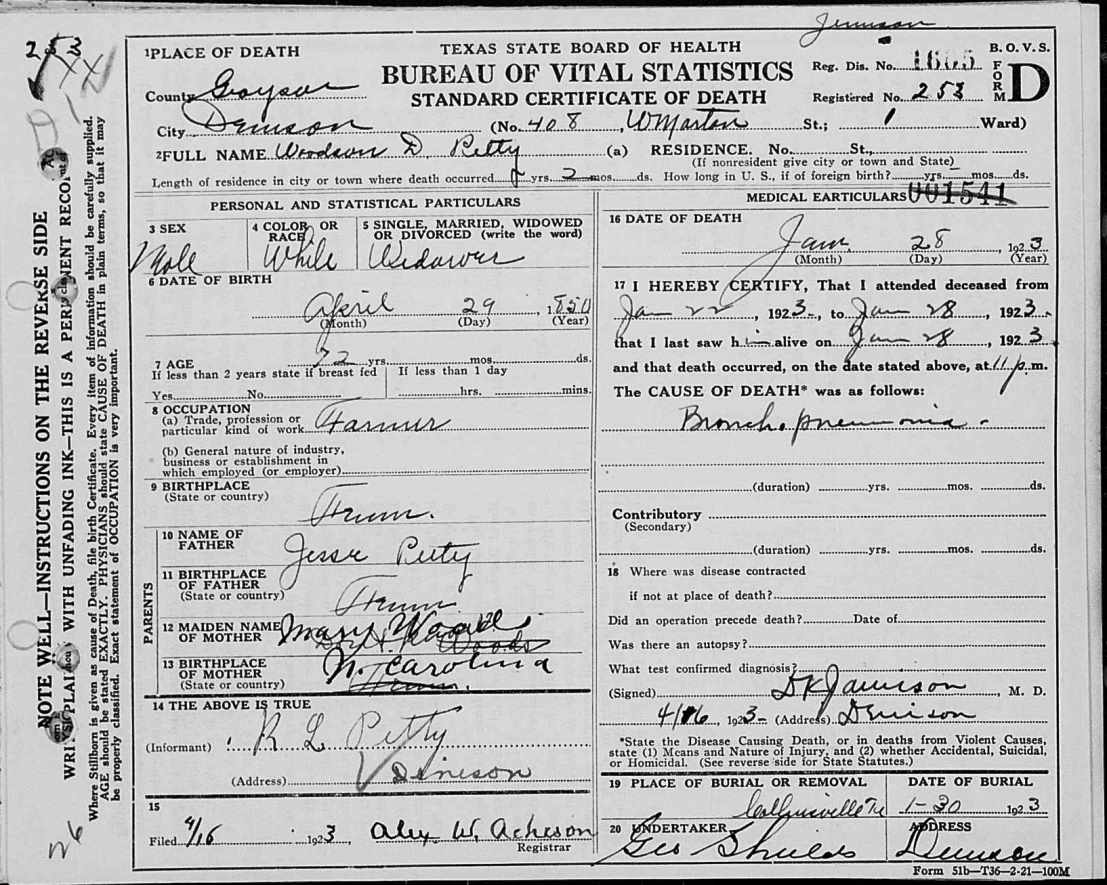 Jemison
253
XX
1PLACE OF DEATH
TEXAS STATE BOARD OF HEALTH
BUREAU OF VITAL STATISTICS
STANDARD CERTIFICATE OF DEATH
B. O. V. S.
FORM D
Reg. Dis. No. 1605
Registered No. 253
County Grayson
City Denison (No. 408 W Morton St.; 1 Ward)
2FULL NAME Woodson D. Petty (a) RESIDENCE. No. St.,
(If nonresident give city or town and State)
Length of residence in city or town where death occurred yrs. 2 mos. ds. How long in U. S., if of foreign birth? yrs. mos. ds.
PERSONAL AND STATISTICAL PARTICULARS
3 SEX
Male
4 COLOR OR RACE
White
5 SINGLE, MARRIED, WIDOWED
OR DIVORCED (write the word)
Widower
6 DATE OF BIRTH
April 29, 1850
(Month) (Day) (Year)
7 AGE 72 yrs. mos. ds.
If less than 2 years state if breast fed
Yes No
If less than 1 day
hrs. mins.
8 OCCUPATION
(a) Trade, profession or
particular kind of work Farmer
(b) General nature of industry,
business or establishment in
which employed (or employer)
9 BIRTHPLACE
(State or country) Tenn.
PARENTS
10 NAME OF
FATHER Jesse Petty
11 BIRTHPLACE
OF FATHER
(State or country) Tenn
12 MAIDEN NAME
OF MOTHER Mary Woods
Woods
13 BIRTHPLACE
OF MOTHER
(State or country) N. Carolina
Tenn.
14 THE ABOVE IS TRUE
(Informant) R L Petty
(Address) Denison
15
Filed 4/16 1923 Alex W. Acheson
Registrar
MEDICAL EARTICULARS 001541
16 DATE OF DEATH
Jan 28, 1923
(Month) (Day) (Year)
17 I HEREBY CERTIFY, That I attended deceased from
Jan 22, 1923, to Jan 28, 1923.
that I last saw him alive on Jan 28, 1923
and that death occurred, on the date stated above, at 11 p. m.
The CAUSE OF DEATH* was as follows:
Broncho pneumonia.
(duration) yrs. mos. ds.
Contributory
(Secondary)
(duration) yrs. mos. ds.
18 Where was disease contracted
if not at place of death?
Did an operation precede death? Date of
Was there an autopsy?
What test confirmed diagnosis?
(Signed) D K Jamison, M. D.
4/16, 1923 (Address) Denison
*State the Disease Causing Death, or in deaths from Violent Causes,
state (1) Means and Nature of Injury, and (2) whether Accidental, Suicidal,
or Homicidal. (See reverse side for State Statutes.)
19 PLACE OF BURIAL OR REMOVAL
Collinsville Tx
DATE OF BURIAL
1-30 1923
20 UNDERTAKER
Geo Shields
ADDRESS
Denison
Form 51b—T36—2-21—100M
NOTE WELL—INSTRUCTIONS ON THE REVERSE SIDE
WRITE PLAINLY WITH UNFADING INK—THIS IS A PERMANENT RECORD
Where Stillborn is given as cause of Death, file birth Certificate. Every item of information should be carefully supplied.
AGE should be stated EXACTLY. PHYSICIANS should state CAUSE OF DEATH in plain terms, so that it may
be properly classified. Exact statement of OCCUPATION is very important.
26